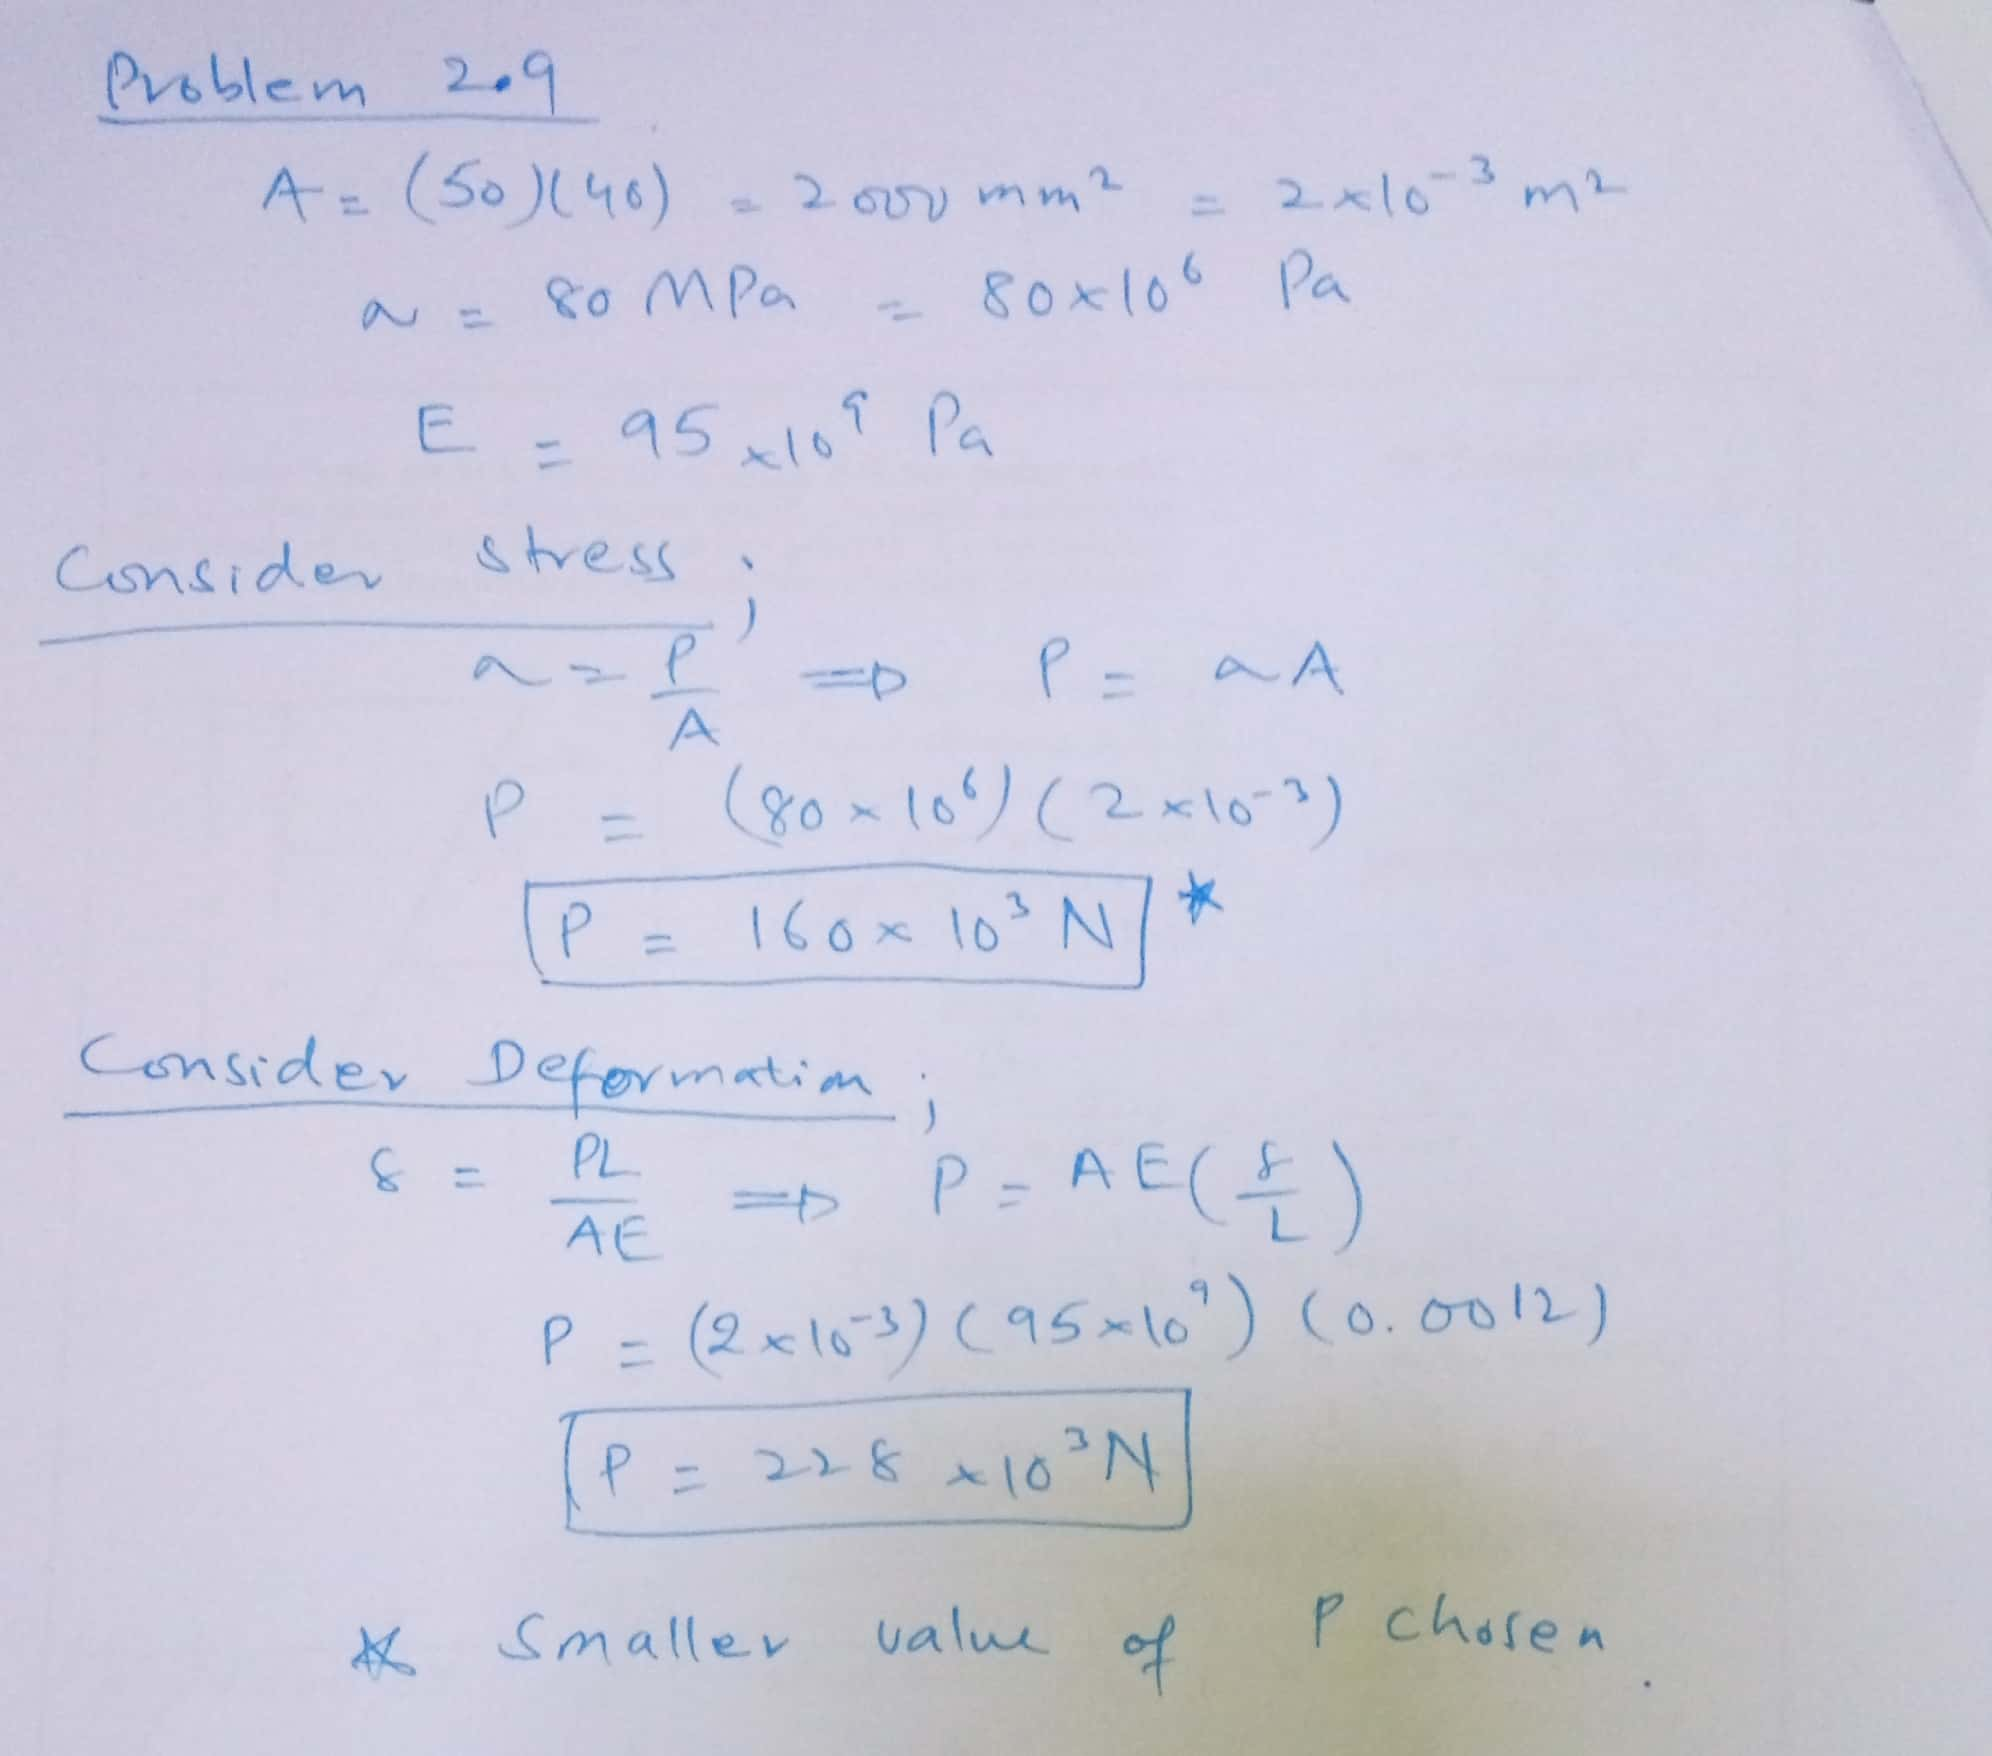 Problem 2.9
A = (50)(40) = 2000 mm² = 2×10⁻³ m²
σ = 80 MPa = 80×10⁶ Pa
E = 95×10⁹ Pa
Consider stress ;
σ = P/A ⇒ P = σA
P = (80×10⁶)(2×10⁻³)
P = 160×10³ N *
Consider Deformation ;
δ = PL/AE ⇒ P = AE(δ/L)
P = (2×10⁻³)(95×10⁹)(0.0012)
P = 228×10³ N
* Smaller value of P chosen.